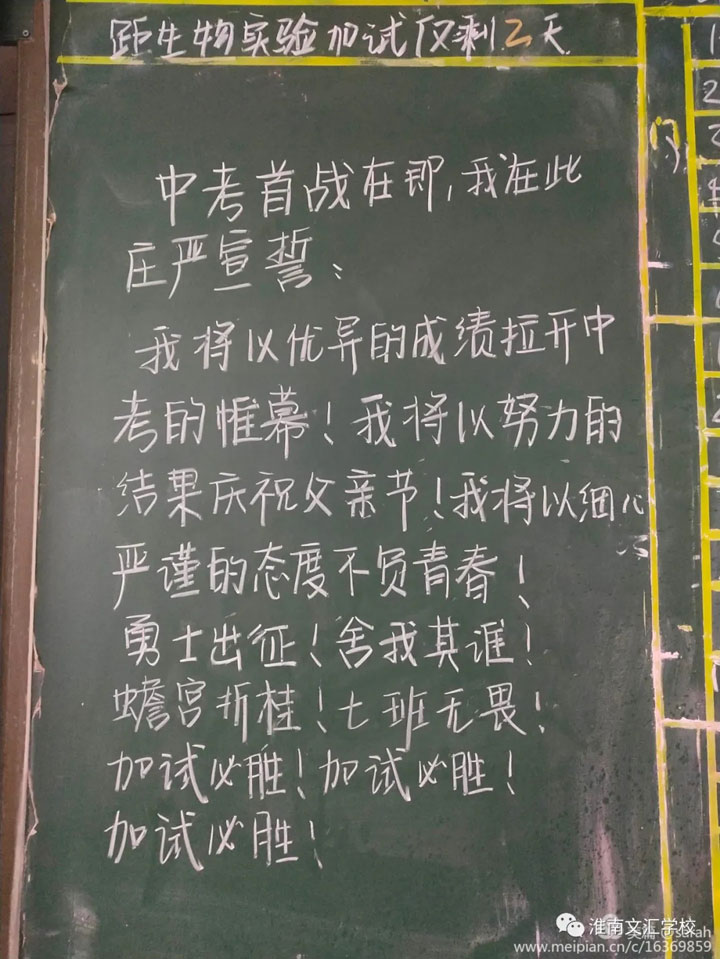 距生物实验加试仅剩2天
中考首战在即,我在此
庄严宣誓:
我将以优异的成绩拉开中
考的帷幕!我将以努力的
结果庆祝父亲节!我将以细心
严谨的态度不负青春!
勇士出征!舍我其谁!
蟾宫折桂!七班无畏!
加试必胜!加试必胜!
加试必胜!
淮南文汇学校
www.meipian.cn/c/16369859